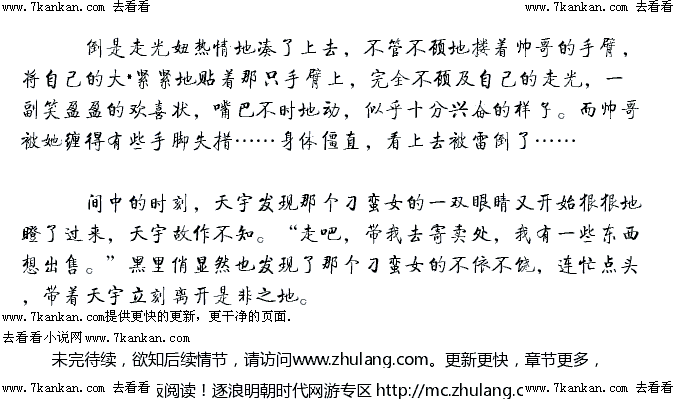 www.7kankan.com 去看看
www.7kankan.com 去看看
倒是走光妞热情地凑了上去，不管不顾地搂着帅哥的手臂，
将自己的大*紧紧地贴着那只手臂上，完全不顾及自己的走光，一
副笑盈盈的欢喜状，嘴巴不时地动，似乎十分兴奋的样子。而帅哥
被她缠得有些手脚失措……身体僵直，看上去被雷倒了……
间中的时刻，天宇发现那个刁蛮女的一双眼睛又开始狠狠地
瞪了过来，天宇故作不知。“走吧，带我去寄卖处，我有一些东西
想出售。”黑里俏显然也发现了那个刁蛮女的不依不饶，连忙点头
，带着天宇立刻离开是非之地。
www.7kankan.com提供更快的更新，更干净的页面.
去看看小说网www.7kankan.com
未完待续，欲知后续情节，请访问www.zhulang.com。更新更快，章节更多，
www.7kankan.com 去看看
阅读！逐浪明朝时代网游专区 http://mc.zhulang.c
www.7kankan.com 去看看